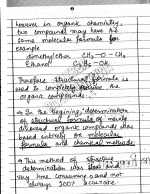 however in organic chemistry,
two compounds may have the
same molecular formula for
example
dimethylether CH3 - O - CH3
Ethanol C2H5 - OH
Therefore structural formula is
used to completely describe the
organic compounds.
→ In the begining, determination
of structural formula of newly
discovered organic compounds was
based entirely on molecular
formula and chemical methods.
→ This method of structure
determination was
very time consuming and not
always 100% accurate.